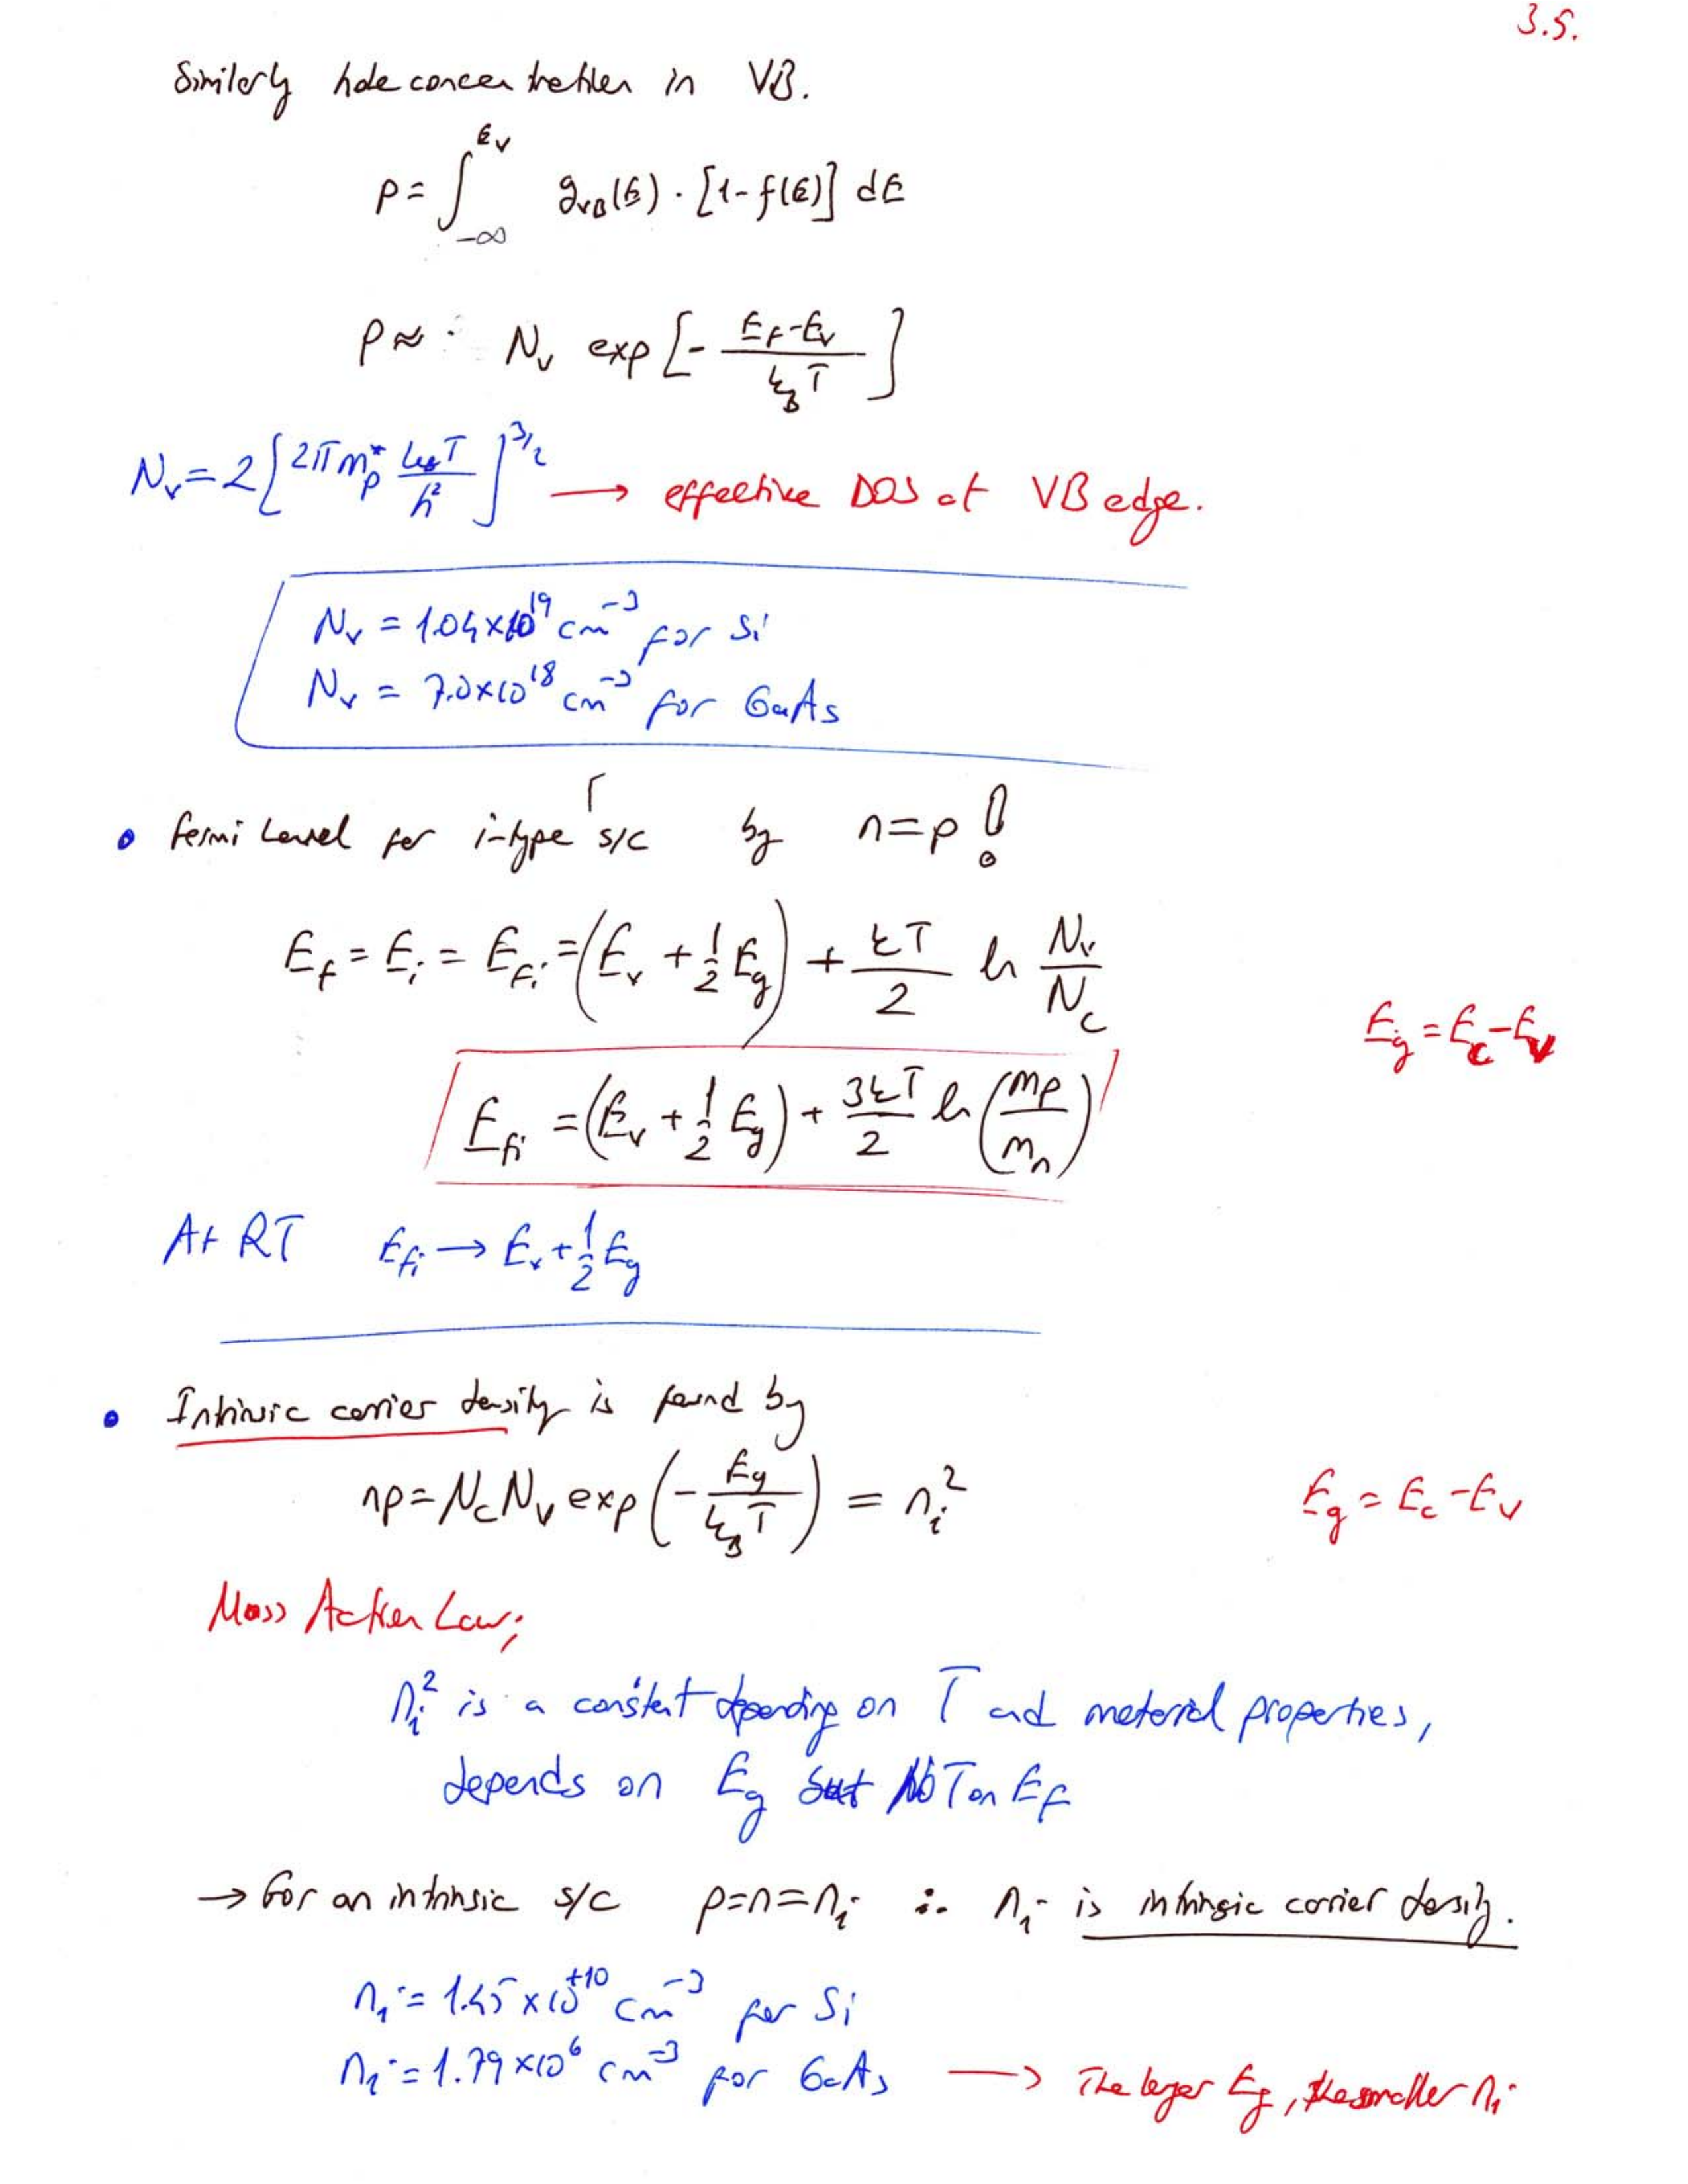 3.5.
Similarly hole concentration in VB.
p = ∫_{-∞}^{E_v} g_{VB}(E) · [1 - f(E)] dE
p ≈ N_v exp [ - (E_F - E_v) / (k_B T) ]
N_v = 2 [ 2π m_p^* k_B T / h^2 ]^{3/2} → effective DOS at VB edge.
N_v = 1.04 × 10^19 cm^-3 for Si
N_v = 7.0 × 10^18 cm^-3 for GaAs
• Fermi Level for i-type s/c by n = p !
E_f = E_i = E_{Fi} = (E_v + 1/2 E_g) + kT/2 ln N_v/N_c
E_g = E_c - E_v
E_{fi} = (E_v + 1/2 E_g) + 3kT/2 ln (m_p/m_n)
At RT E_{fi} → E_v + 1/2 E_g
• Intrinsic carrier density is found by
np = N_c N_v exp ( - E_g / (k_B T) ) = n_i^2 E_g = E_c - E_v
Mass Action Law;
n_i^2 is a constant depending on T and material properties,
depends on E_g but NOT on E_F
→ For an intrinsic s/c p = n = n_i ∴ n_i is intrinsic carrier density.
n_i = 1.45 × 10^{+10} cm^-3 for Si
n_i = 1.79 × 10^6 cm^-3 for GaAs → The larger E_g, the smaller n_i